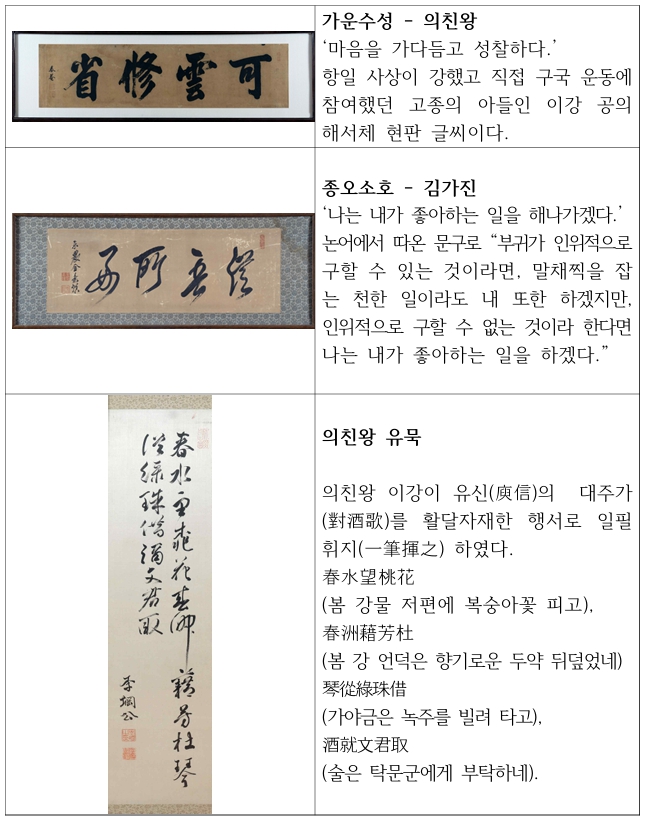 可雲修省
가운수성 - 의친왕
‘마음을 가다듬고 성찰하다.’
항일 사상이 강했고 직접 구국 운동에
참여했던 고종의 아들인 이강 공의
해서체 현판 글씨이다.
從吾所好
종오소호 - 김가진
‘나는 내가 좋아하는 일을 해나가겠다.’
논어에서 따온 문구로 “부귀가 인위적으로
구할 수 있는 것이라면, 말채찍을 잡
는 천한 일이라도 내 또한 하겠지만,
인위적으로 구할 수 없는 것이라 한다면
나는 내가 좋아하는 일을 하겠다.”
春水望桃花春洲藉芳杜琴
從綠珠借酒就文君取
李堈公
의친왕 유묵
의친왕 이강이 유신(庾信)의 대주가
(對酒歌)를 활달자재한 행서로 일필
휘지(一筆揮之) 하였다.
春水望桃花
(봄 강물 저편에 복숭아꽃 피고),
春洲藉芳杜
(봄 강 언덕은 향기로운 두약 뒤덮었네)
琴從綠珠借
(가야금은 녹주를 빌려 타고),
酒就文君取
(술은 탁문군에게 부탁하네).